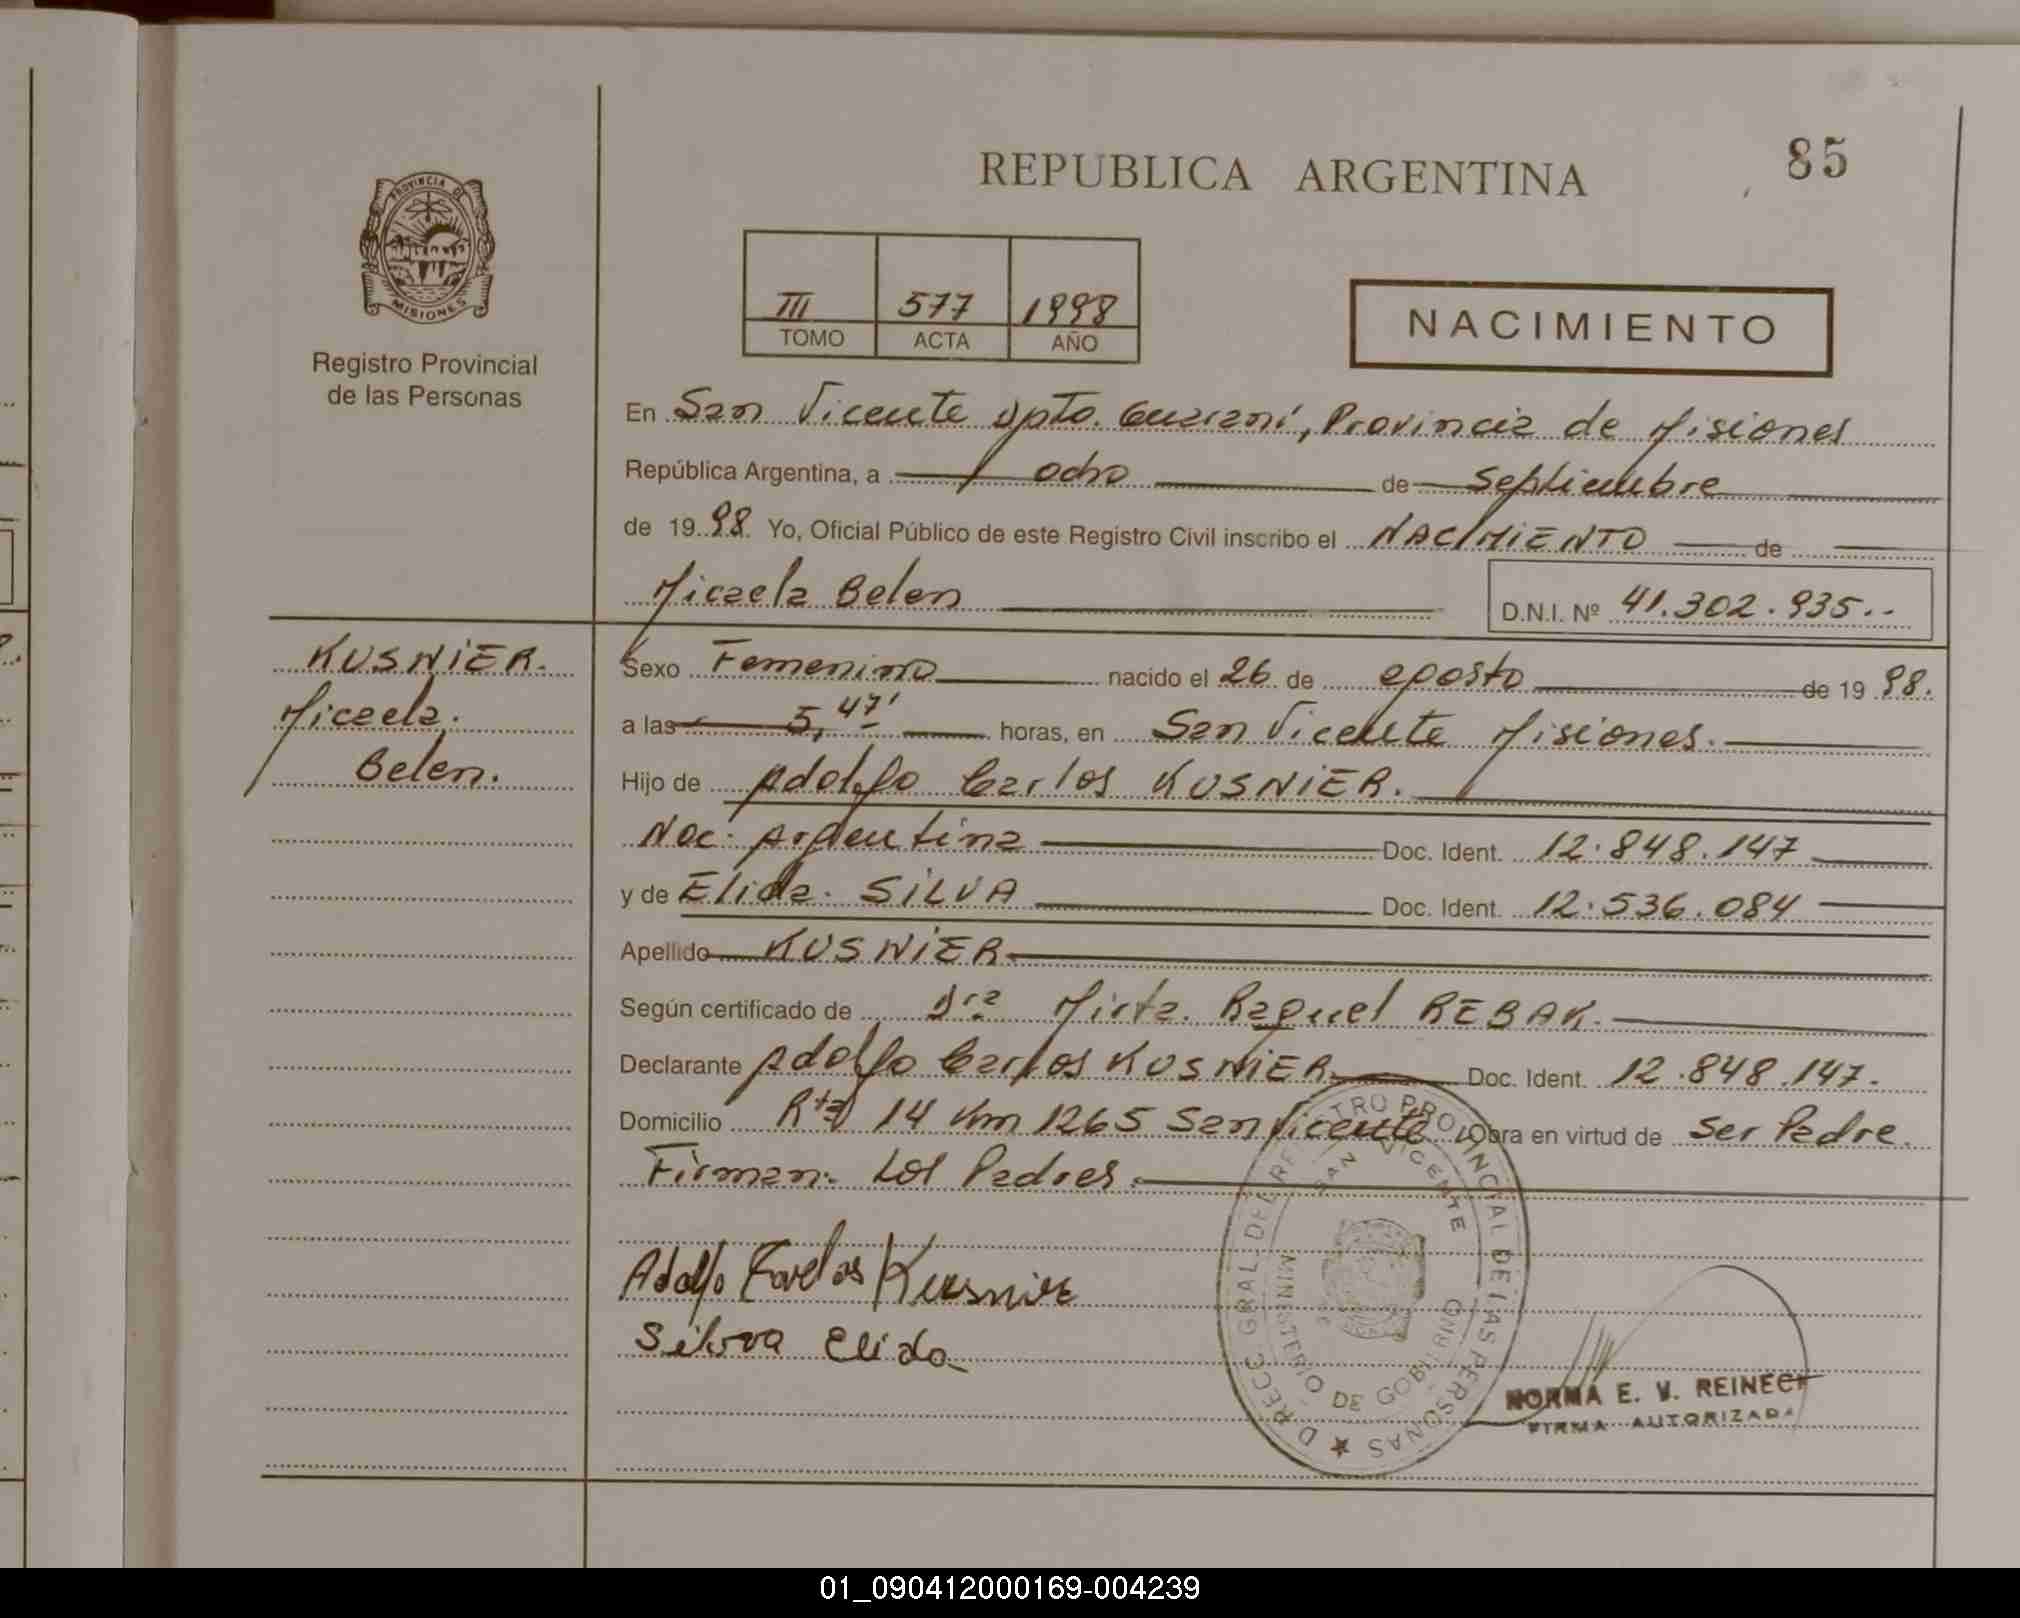 REPUBLICA ARGENTINA
85
PROVINCIA DE
MISIONES
Registro Provincial
de las Personas
III 577 1998
TOMO ACTA AÑO
NACIMIENTO
En San Vicente Dpto. Guaraní, Provincia de Misiones
República Argentina, a ocho de Septiembre
de 19 98. Yo, Oficial Público de este Registro Civil inscribo el NACIMIENTO de
Micaela Belen
D.N.I. Nº 41.302.935..
KUSNIER.
Micaela.
Belen.
Sexo Femenino nacido el 26 de agosto de 19 98.
a las 5,47' horas, en San Vicente Misiones.
Hijo de Adolfo Carlos KUSNIER.
Nac. Argentina Doc. Ident. 12.848.147
y de Elida. SILVA Doc. Ident. 12.536.084
Apellido KUSNIER
Según certificado de Dra Mirta. Raquel REBAK.
Declarante Adolfo Carlos KUSNIER Doc. Ident. 12.848.147.
Domicilio Rta 14 Km 1265 San Vicente Obra en virtud de ser Padre.
Firman: Los Padres.
Adolfo Carlos Kusnier
Silova Elida
DIRECC. GRAL. DEL REGISTRO PROVINCIAL DE LAS PERSONAS
SAN VICENTE
MINISTERIO DE GOBIERNO
NORMA E. V. REINECK
FIRMA AUTORIZADA
01_090412000169-004239